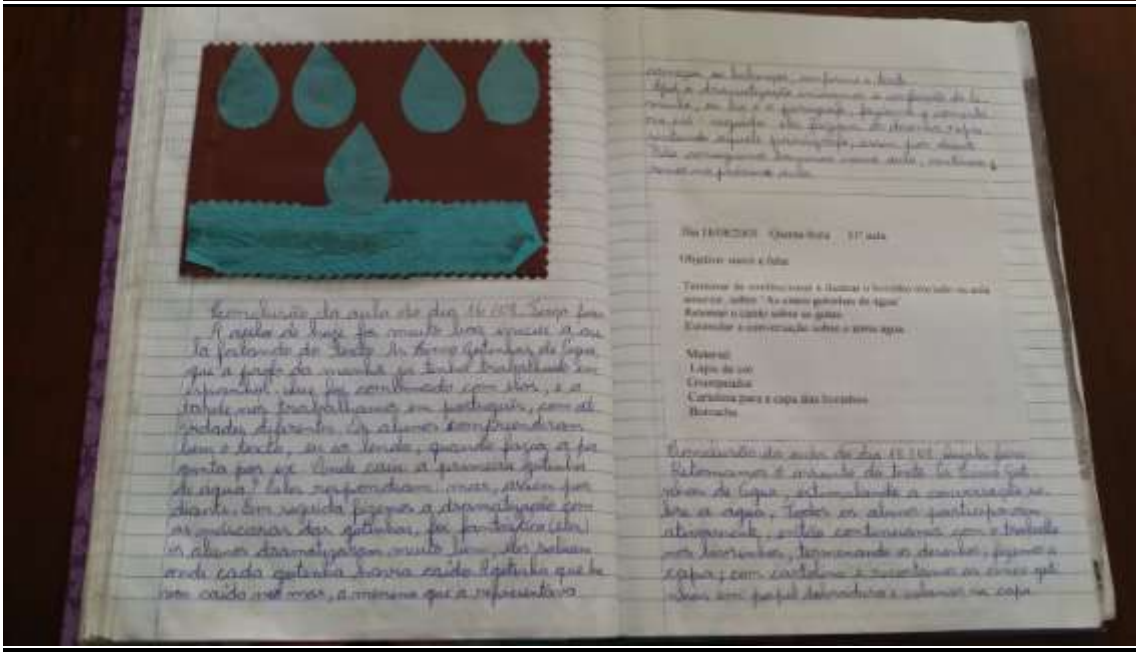 Conclusão da aula do dia 16/08 Terça feira
A aula de hoje foi muito boa, iniciei a au
la falando do texto As Cinco Gotinhas de Água
que a profe da manhã já tinha trabalhado em
espanhol. Isso foi combinado com elas, e a
tarde nós trabalhamos em português, com at
vidades diferentes. Os alunos compreenderam
bem o texto, eu ao lendo, quando fazia a per
gunta por ex. Onde caiu a primeira gotinha
de água? Eles respondiam: mar, assim por
diante. Em seguida fizemos a dramatização com
as máscaras das gotinhas, foi fantástico
os alunos dramatizaram muito bem, eles sabiam
onde cada gotinha havia caído. A gotinha que ha
via caído no mar, a menina que a representava
conforme o texto.
Após a dramatização a confecção do li
vrinho, eu lia o parágrafo, fazíamos o comentá
em seguida eles faziam o desenho repre
sentando aquele parágrafo, assim por diante
Não conseguimos nessa aula, continua
remos na próxima aula.
Dia 18/08/2005 Quinta-feira 11ª aula
Objetivo: ouvir e falar
Terminar de confeccionar e ilustrar o livrinho iniciado na aula
anterior, sobre "As cinco gotinhas de água"
Retomar o
Estimular a conversação sobre o tema água.
Material:
Lápis de cor
Grampeador
Cartolina para a capa dos livrinhos
Borracha
Conclusão da aula do dia 18/08 Quinta feira
Retomamos o assunto do texto As Cinco Got
nhas de Água, estimulando a conversação so
bre a água, Todos os alunos participaram
ativamente, então continuamos com o trabalho
nos livrinhos, terminando os desenhos, fizemos a
capa; com cartolina e recortamos as cinco got
nhas em papel dobradura e colamos na capa